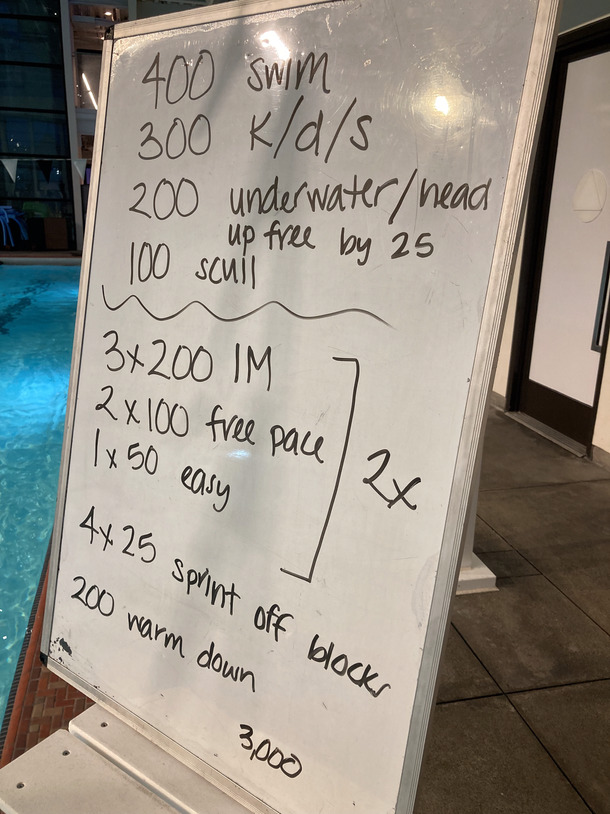 400 swim
300 k/d/s
200 underwater/head
up free by 25
100 scull
3x200 IM
2x100 free pace
1x50 easy
2x
4x25 sprint off blocks
200 warm down
3,000